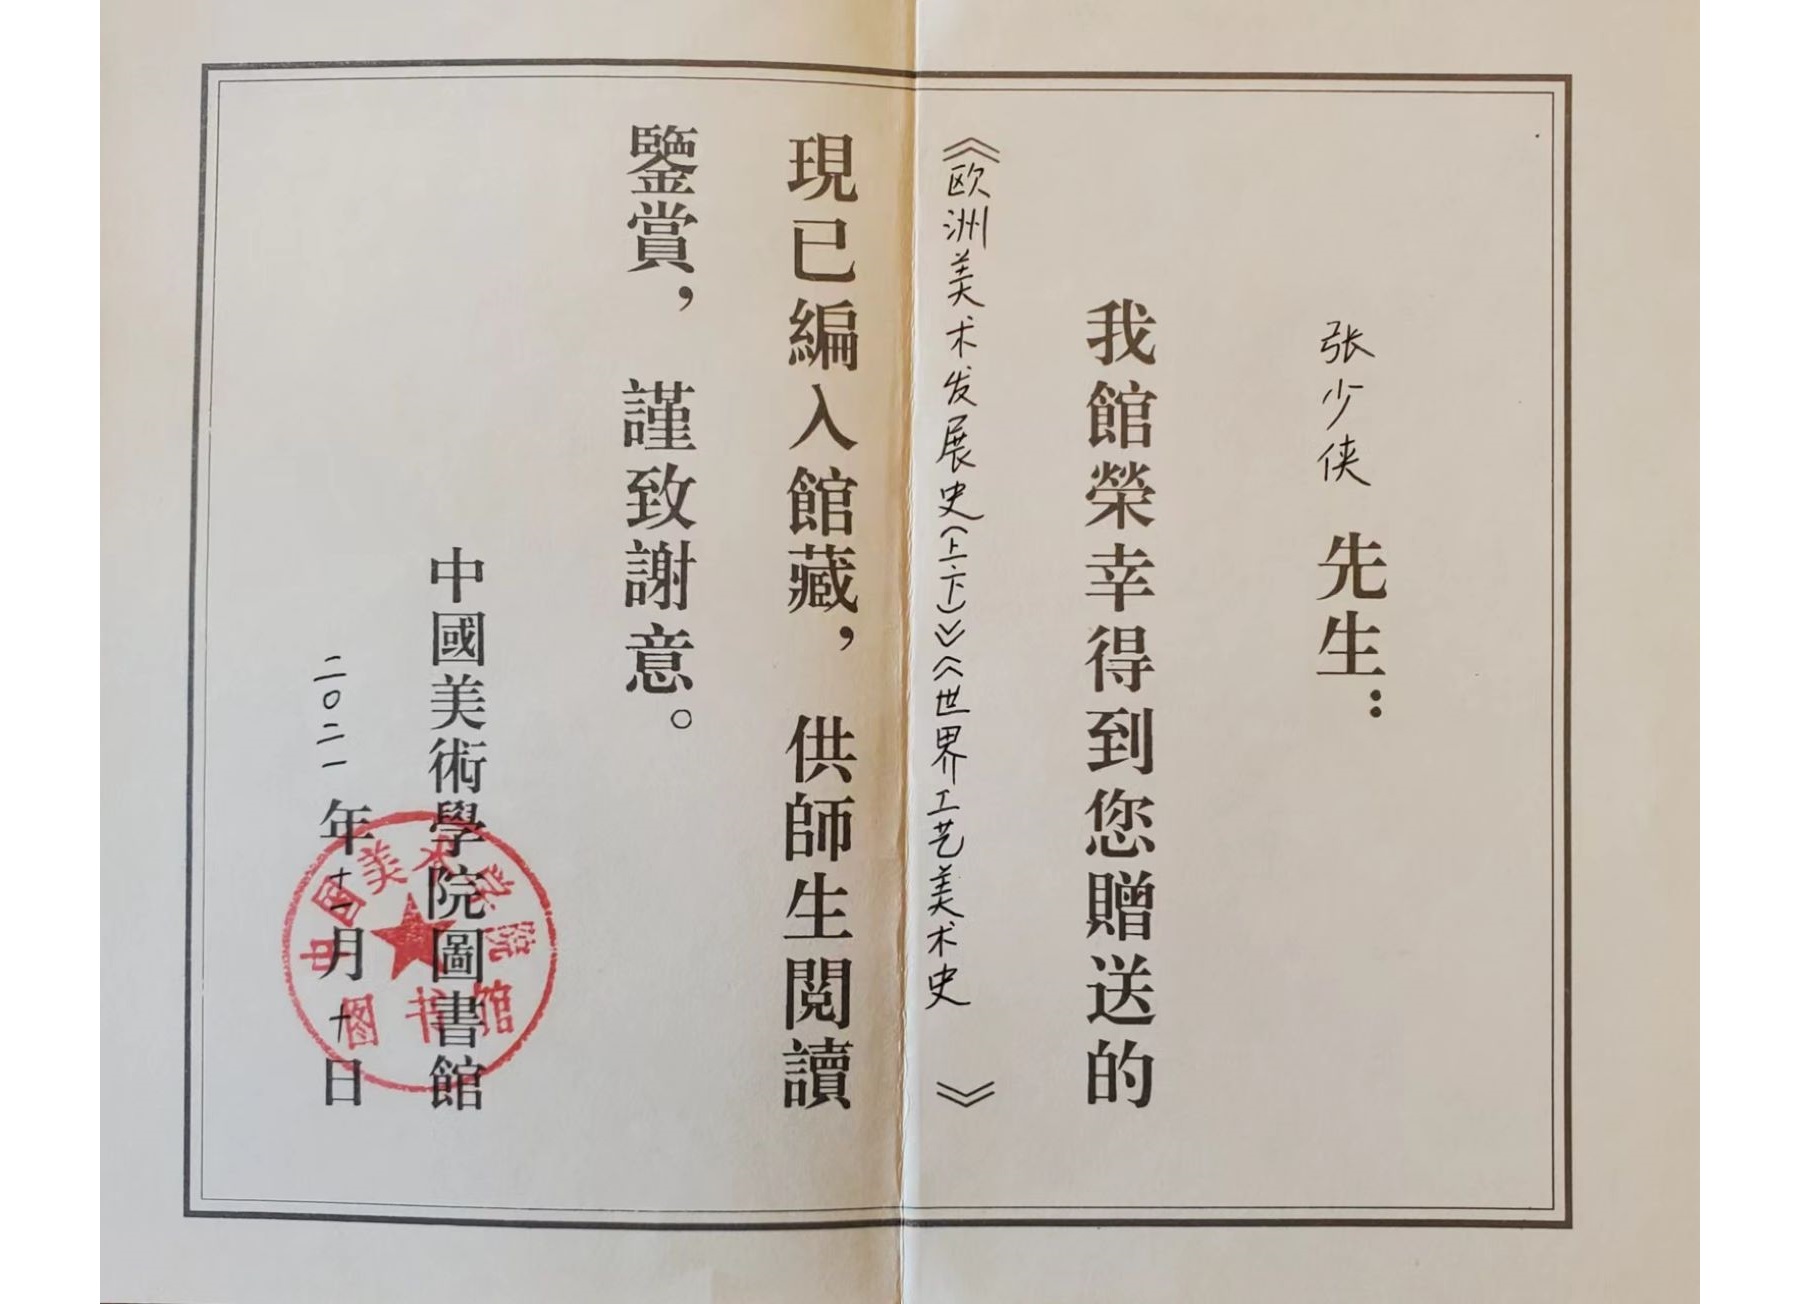 张少侠 先生：
我館榮幸得到您贈送的
《欧洲美术发展史(上、下)》《世界工艺美术史 》
現已編入館藏，供師生閲讀
鑒賞，謹致謝意。
中國美術學院圖書館
二〇二一年十一月十日
中国美术学院
图书馆